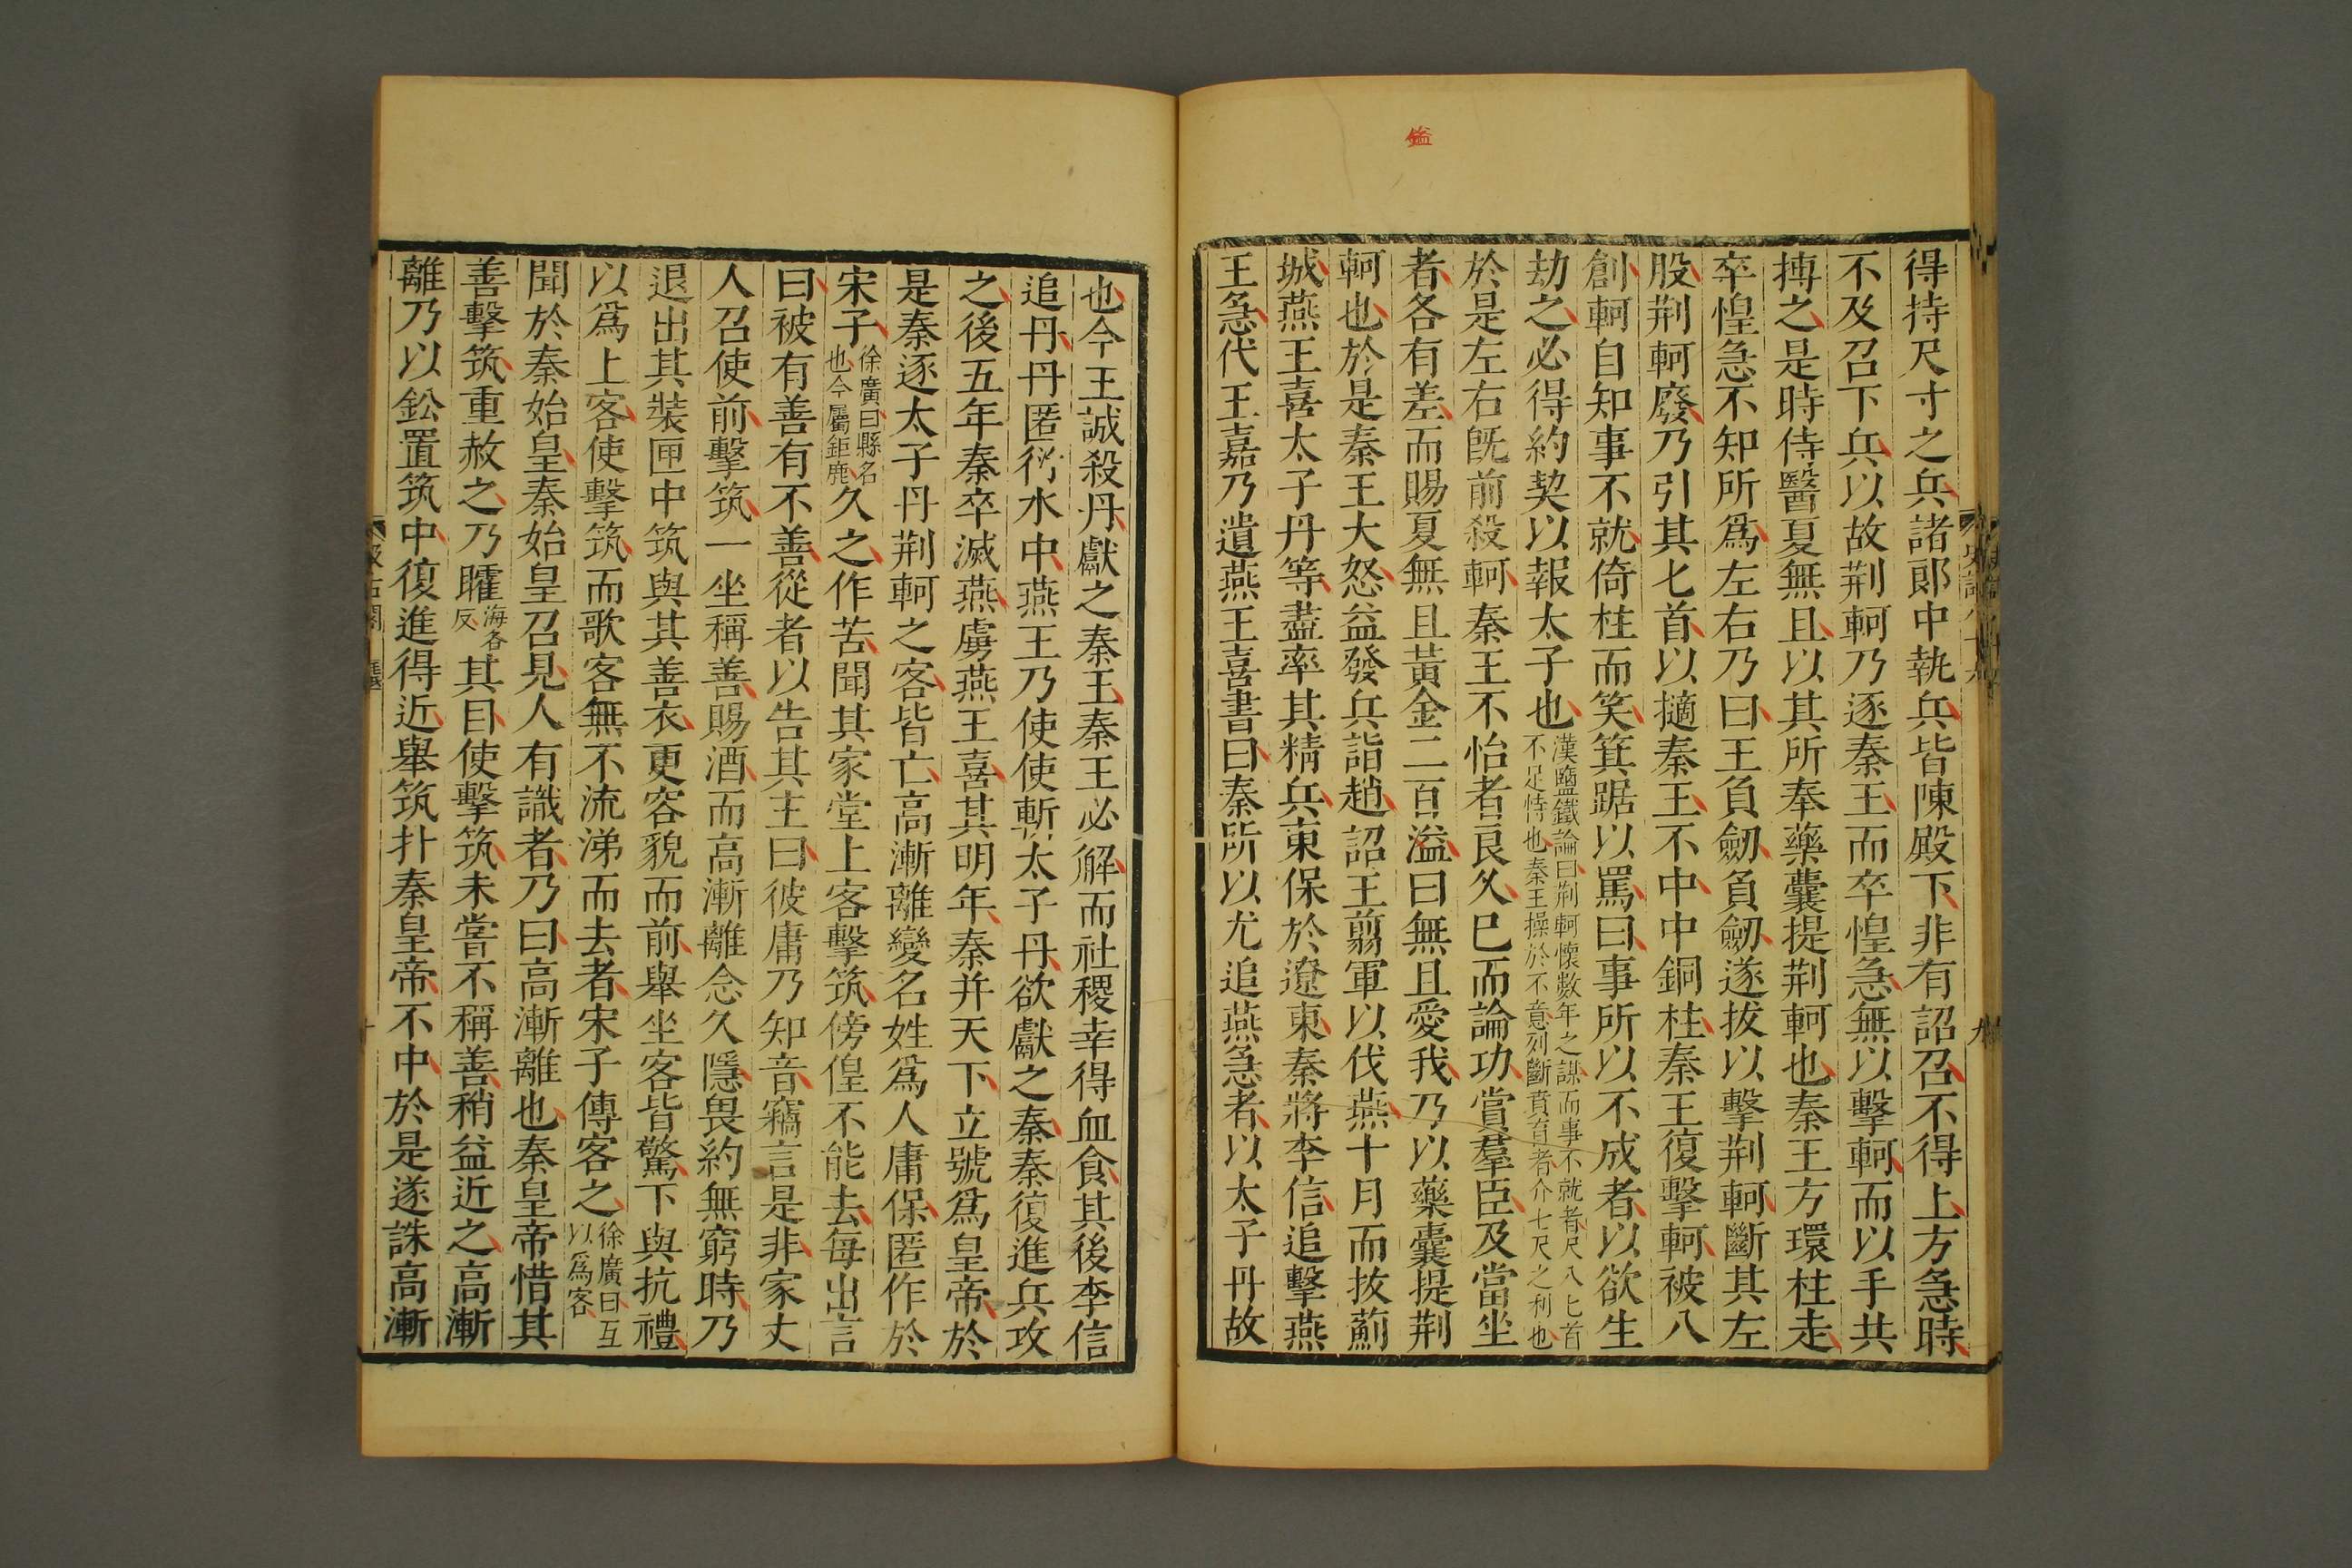 鎰
得持尺寸之兵諸郎中執兵皆陳殿下非有詔召不得上方急時
不及召下兵以故荆軻乃逐秦王而卒惶急無以擊軻而以手共
搏之是時侍醫夏無且以其所奉藥囊提荆軻也秦王方環柱走
卒惶急不知所爲左右乃曰王負劒負劒遂拔以擊荆軻斷其左
股荆軻廢乃引其匕首以擿秦王不中中銅柱秦王復擊軻被八
創軻自知事不就倚柱而笑箕踞以罵曰事所以不成者以欲生
劫之必得約契以報太子也漢鹽鐵論曰荆軻懷數年之謀而事不就者尺八匕首不足恃也秦王操於不意列斷賁育者介七尺之利也
於是左右旣前殺軻秦王不怡者良久已而論功賞羣臣及當坐
者各有差而賜夏無且黃金二百溢曰無且愛我乃以藥囊提荆
軻也於是秦王大怒益發兵詣趙詔王翦軍以伐燕十月而拔薊
城燕王喜太子丹等盡率其精兵東保於遼東秦將李信追擊燕
王急代王嘉乃遺燕王喜書曰秦所以尤追燕急者以太子丹故
也今王誠殺丹獻之秦王秦王必解而社稷幸得血食其後李信
追丹丹匿衍水中燕王乃使使斬太子丹欲獻之秦秦復進兵攻
之後五年秦卒滅燕虜燕王喜其明年秦并天下立號爲皇帝於
是秦逐太子丹荆軻之客皆亡高漸離變名姓爲人庸保匿作於
宋子徐廣曰縣名也今屬鉅鹿久之作苦聞其家堂上客擊筑傍偟不能去每出言
曰彼有善有不善從者以告其主曰彼庸乃知音竊言是非家丈
人召使前擊筑一坐稱善賜酒而高漸離念久隱畏約無窮時乃
退出其裝匣中筑與其善衣更容貌而前舉坐客皆驚下與抗禮
以爲上客使擊筑而歌客無不流涕而去者宋子傳客之徐廣曰互以爲客
聞於秦始皇秦始皇召見人有識者乃曰高漸離也秦皇帝惜其
善擊筑重赦之乃矐海各反其目使擊筑未嘗不稱善稍益近之高漸
離乃以鈆置筑中復進得近舉筑扑秦皇帝不中於是遂誅高漸